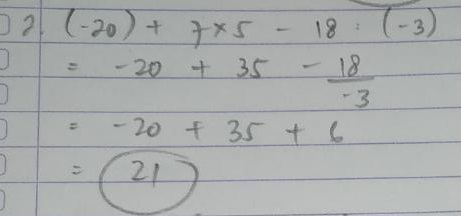 2. (-20) + 7 × 5 - 18 : (-3)
= -20 + 35 - 18/-3
= -20 + 35 + 6
= 21